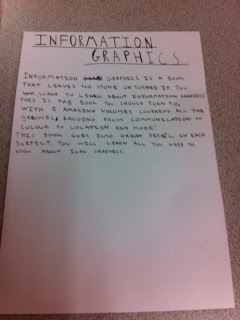 INFORMATION
GRAPHICS
INFORMATION GRAPHICS IS A BOOK
THAT LEAVES NO STONE UNTURNED IF YOU
WANT TO LEARN ABOUT INFORMATION GRAPHICS
THIS IS THE BOOK YOU SHOULD TURN TO,
WITH 5 AMAZING VOLUMES COVERING ALL THE
RANGING FROM COMMUNICATION
COLOUR TO LOCATION AND MORE!
THIS BOOK GOES INTO GREAT DETAIL ON EACH
SUBJECT, YOU WILL LEARN ALL YOU NEED TO
KNOW ABOUT INFO GRAPHICS.